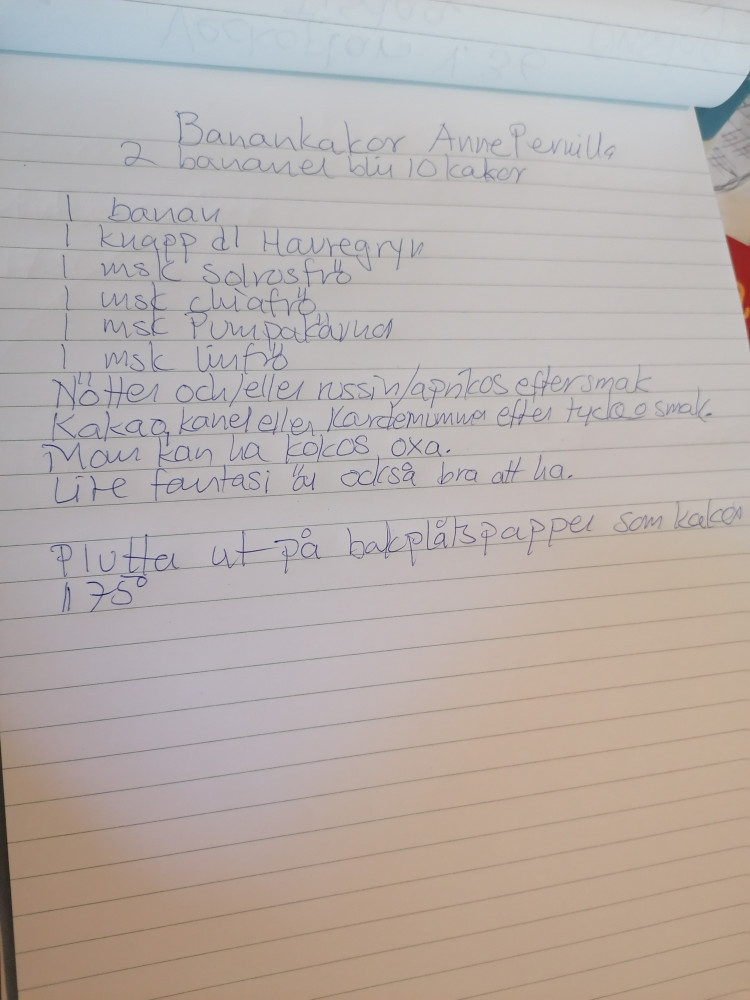 Banankakor AnnePernilla
2 bananer blir 10 kakor
1 banan
1 knapp dl Havregryn
1 msk solrosfrö
1 msk chiafrö
1 msk Pumpakärnor
1 msk linfrö
Nötter och/eller russin/aprikos efter smak
Kakao, kanel eller Kardemumma efter tycke o smak.
Man kan ha kokos oxa.
Lite fantasi är också bra att ha.
Plutta ut på bakplåtspapper som kakor
175°